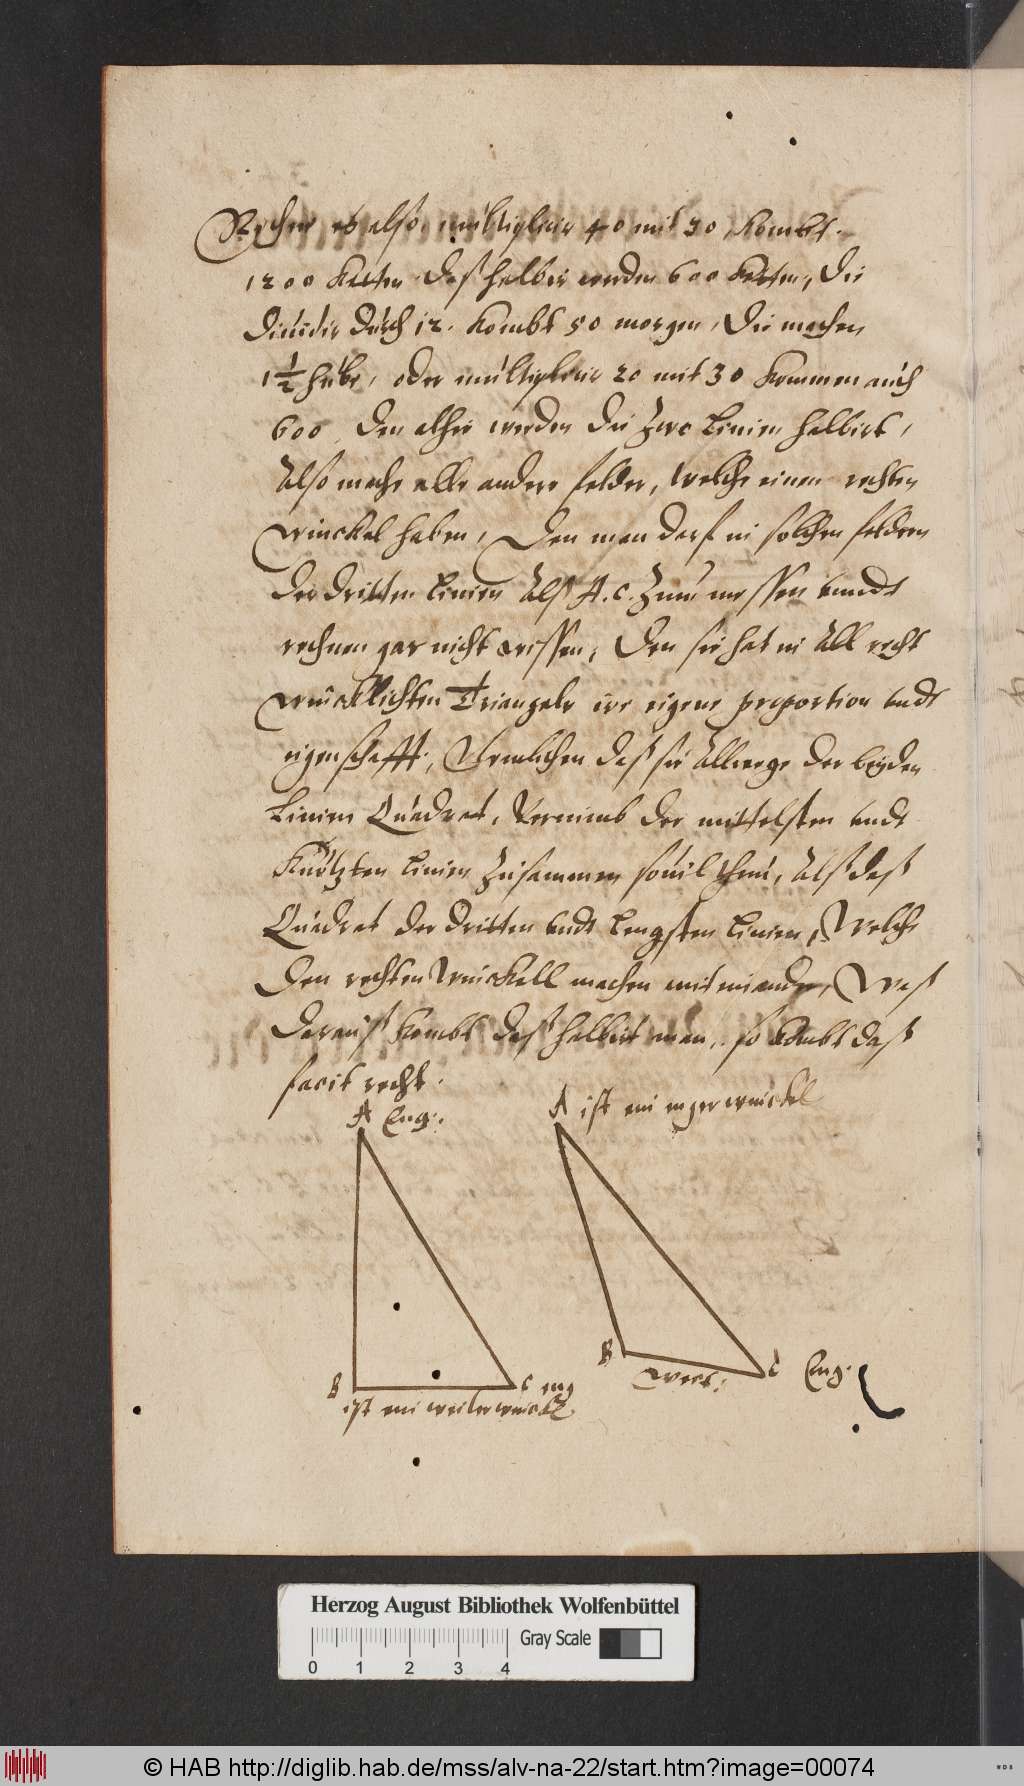 Rechne es also, multiplicir 40 mit 30, Kombt.
1200 Rutten daß halbir werden 600 Rutten, Die
Diuidir durch 12. Kombt 50 morgen, Die machen
1 1/2 hube, oder multiplicir 20 mit 30 Kommen auch
600 Den alhir werden die zwo Linien halbirt,
Also mache alle andere felder, welche einen rechten
winckel haben, Den man darf in solchen feldern
der dritten Linien Alß A. C. Zuu messen vnndt
rechnen gar nicht wissen, Den sie hat in All recht
wincklichten Triangeln ire eigene proportion vndt
eigenschafft, Nemlichen daß sie Allwege der beyden
Linien Quadrat, Vernimb der mittelsten vndt
Kurtzten Linien Zusammen souil thun, Alß daß
Quadrat der dritten vndt Lengsten Linien, Welche
Den rechten Winckell machen mit einander, Waß
darauß Kombt daß halbirt man, so Kombt daß
facit recht.
A Eng:
A ist ein enger winckel
B
C eng
ist ein weiter winckel
B
weit:
C Eng.
Herzog August Bibliothek Wolfenbüttel
Gray Scale
0 1 2 3 4
© HAB http://diglib.hab.de/mss/alv-na-22/start.htm?image=00074